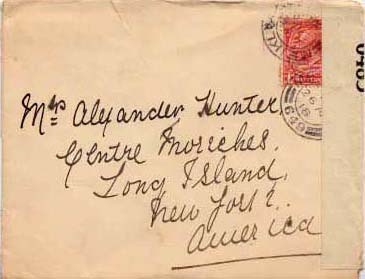 Mrs Alexander Hunter,
Centre Moriches.
Long Island,
New York.
America